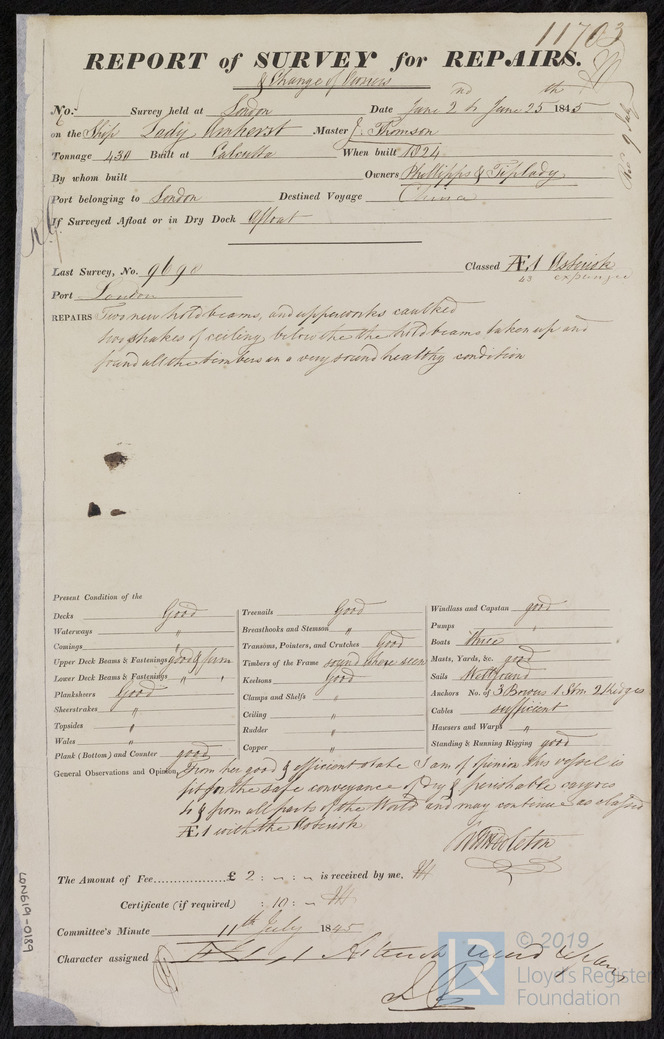 11703
REPORT of SURVEY for REPAIRS.
& Change of Owners
No. Survey held at London Date June 2nd to June 25th 1845
on the Ship Lady Amherst Master J. Thomson
Tonnage 430 Built at Calcutta When built 1824
By whom built Owners Phillipps & Tiplady
Port belonging to London Destined Voyage China
If Surveyed Afloat or in Dry Dock Afloat
Last Survey, No. 9690 Classed Æ1 Asterisk
43 expunged
Port London
REPAIRS Two new hold beams, and upperworks caulked
two strakes of ceiling below the the hold beams taken up and
found all the timbers in a very sound healthy condition
Present Condition of the
Decks Good
Waterways "
Comings "
Upper Deck Beams & Fastenings good & firm
Lower Deck Beams & Fastenings " "
Planksheers Good
Sheerstrakes "
Topsides "
Wales "
Plank (Bottom) and Counter good
Treenails Good
Breasthooks and Stemson "
Transoms, Pointers, and Crutches Good
Timbers of the Frame sound where seen
Keelsons Good
Clamps and Shelfs "
Ceiling "
Rudder "
Copper "
Windlass and Capstan good
Pumps "
Boats three
Masts, Yards, &c. good
Sails Well found
Anchors No. of 3 Bowers 1 Strm 2 Kedges
Cables sufficient
Hawsers and Warps "
Standing & Running Rigging good
General Observations and Opinion, From her good & efficient state I am of opinion this vessel is
fit for the safe conveyance of Dry & perishable cargoes
to & from all parts of the World and may continue as classed
Æ1 with the Asterisk
The Amount of Fee £ 2 : - : - is received by me,
Certificate (if required) : 10 : -
Committee's Minute 11th July 1845
Character assigned
LON616-0189
© 2019
LR
Lloyd's Register
Foundation